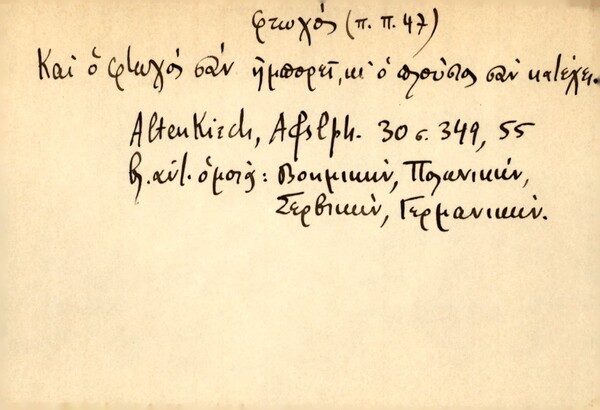 φτωχός (π. π. 47)
Καὶ ὁ φτωχός σὰν ἠμπορεῖ, κι' ὁ πλούσιος σὰν κατέχει.
Altenkirch, Afslph. 30 σ. 349, 55
βλ. αὐτ. ὅμοια: Βοημικήν, Πολωνικήν,
Σερβικήν, Γερμανικήν.